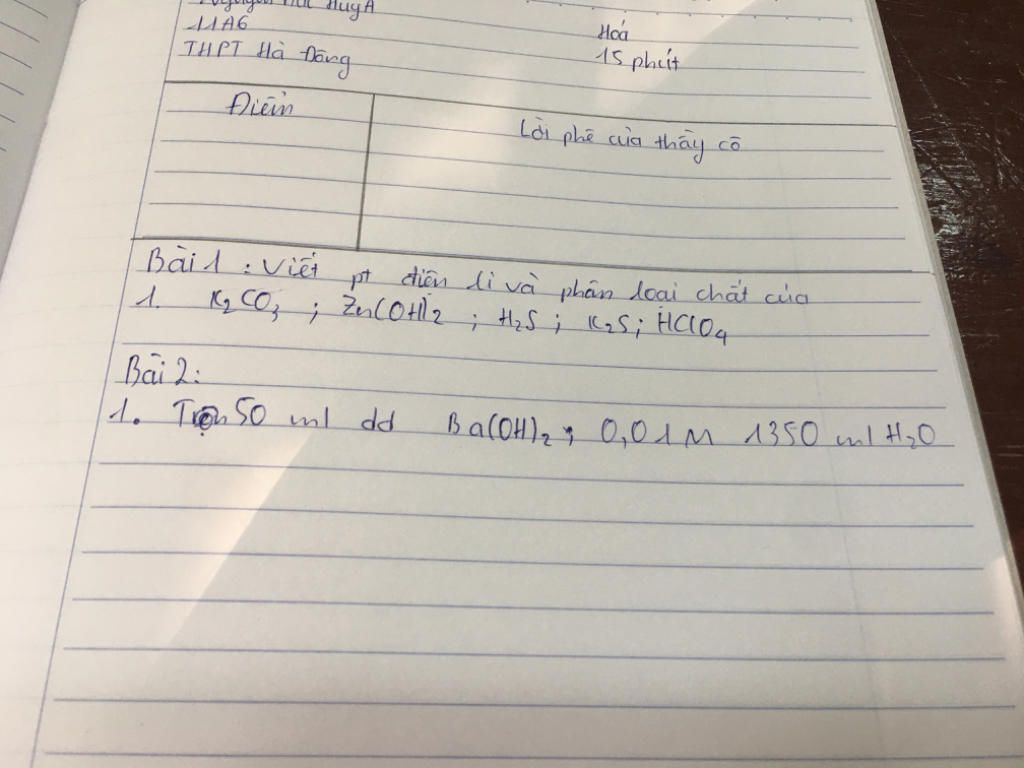 Huy A
11A6
Hoá
THPT Hà Đông
15 phút
Điểm
Lời phê của thầy cô
Bài 1 : Viết pt điện li và phân loại chất của
1. K₂CO₃ ; Zn(OH)₂ ; H₂S ; K₂S ; HClO₄
Bài 2:
1. Trộn 50 ml dd Ba(OH)₂ ; 0,01M 1350 ml H₂O